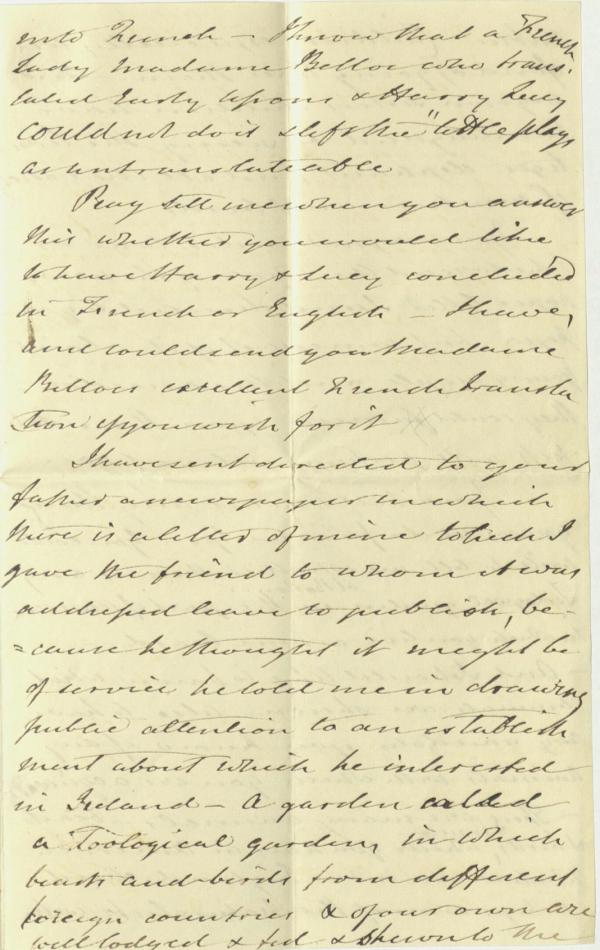 into French – I know that a French
Lady Madame Belloc who trans-
lated Early lessons & Harry Lucy
could not do it & left the "little plays
as untranslateable
Pray tell me when you answer
this whether you would like
to have Harry & Lucy concluded
in French or English – I have,
and could send you Madame
Bellocs excellent French transla
tion if you wish for it
I have sent directed to your
father a newspaper in which
there is a letter of mine which I
gave the friend to whom it was
addressed leave to publish, be-
=cause he thought it might be
of service he told me in drawing
public attention to an establish
ment about which he interested
in Ireland – A garden called
a Zoological garden, in which
beasts and birds from different
foreign countries & of our own are
well lodged & fed & shewn to the